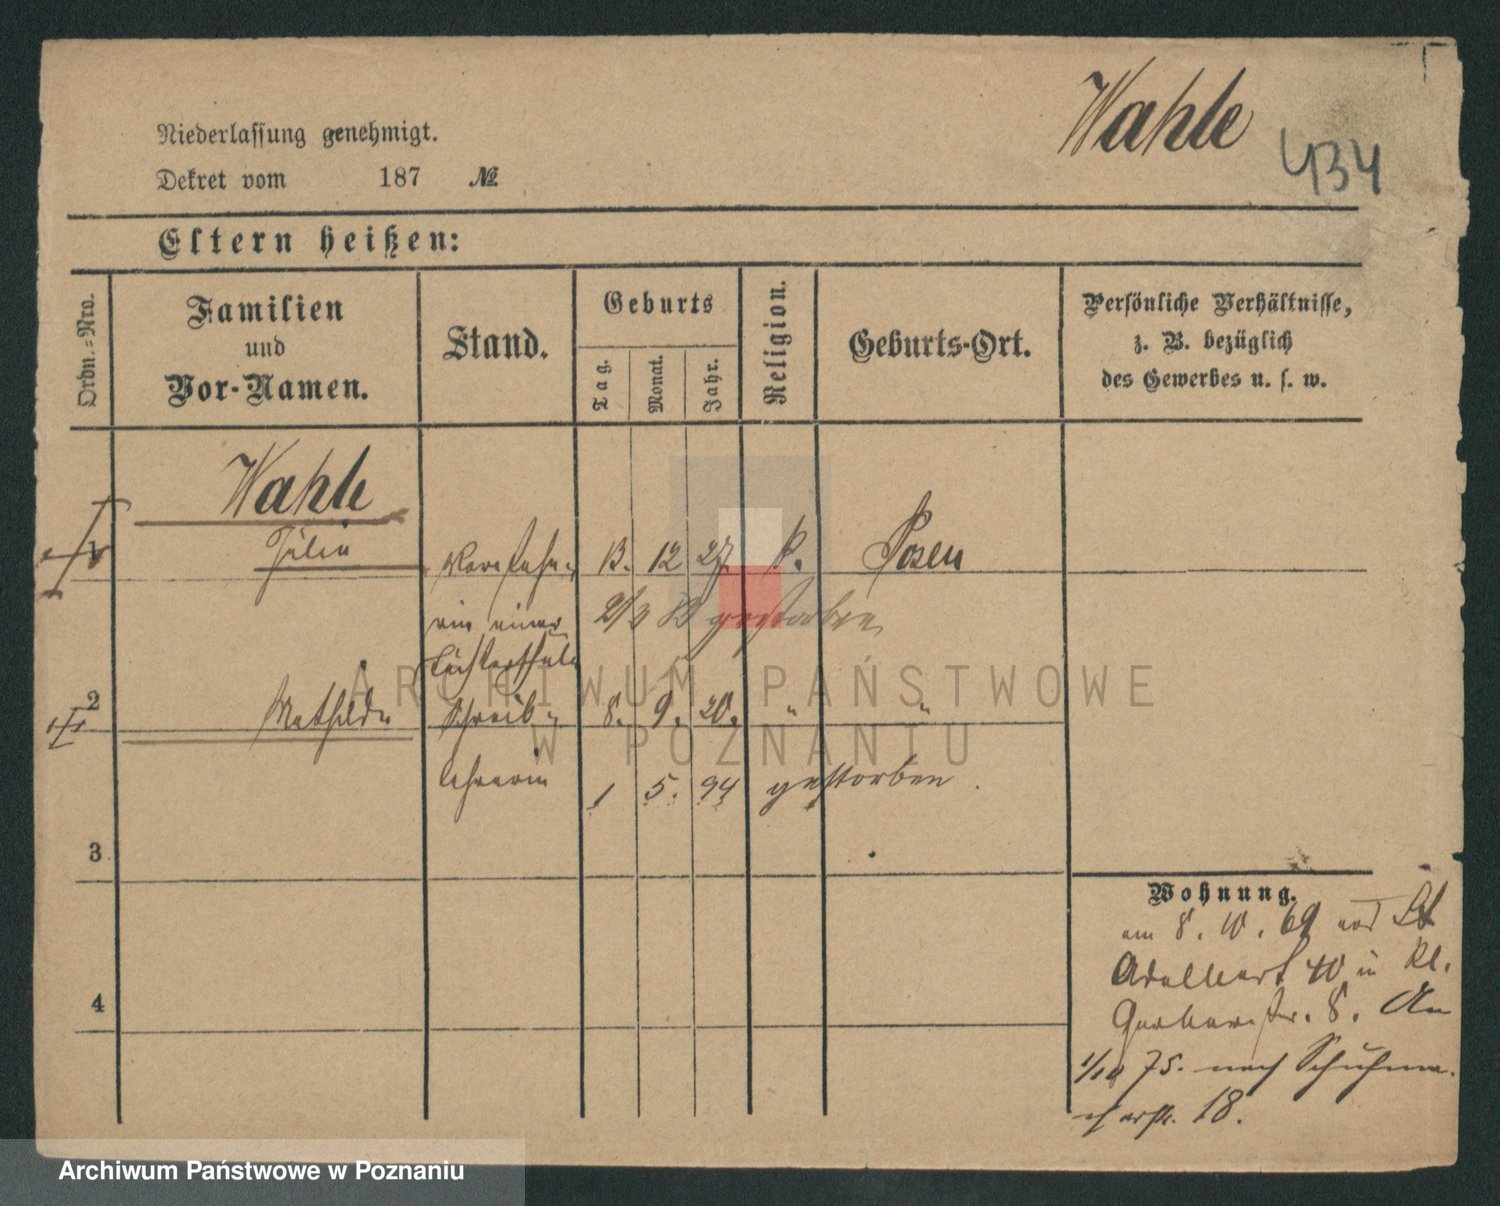 Wahle
434
Niederlassung genehmigt.
Dekret vom 187 №
Eltern heißen:
Ordn.=Nro.
Familien
und
Vor-Namen.
Stand.
Geburts
Tag.
Monat.
Jahr.
Religion.
Geburts-Ort.
Persönliche Verhältnisse,
z. B. bezüglich
des Gewerbes u. s. w.
Wahle
1 Julie Vorsteherin 13. 12 27. k. Posen
einer gestorben
Töchterschule
2 Mathilde Schreib- 8. 9. 20. " "
lehrerin 1 5. 94 gestorben.
3
4
Wohnung.
am 8. 10. 69 von St
Adalbert 40 in Kl.
Gerberstr. 8. Am
1/10 75. nach Schuhma-
cherstr. 18.
ARCHIWUM PAŃSTWOWE
W POZNANIU
Archiwum Państwowe w Poznaniu